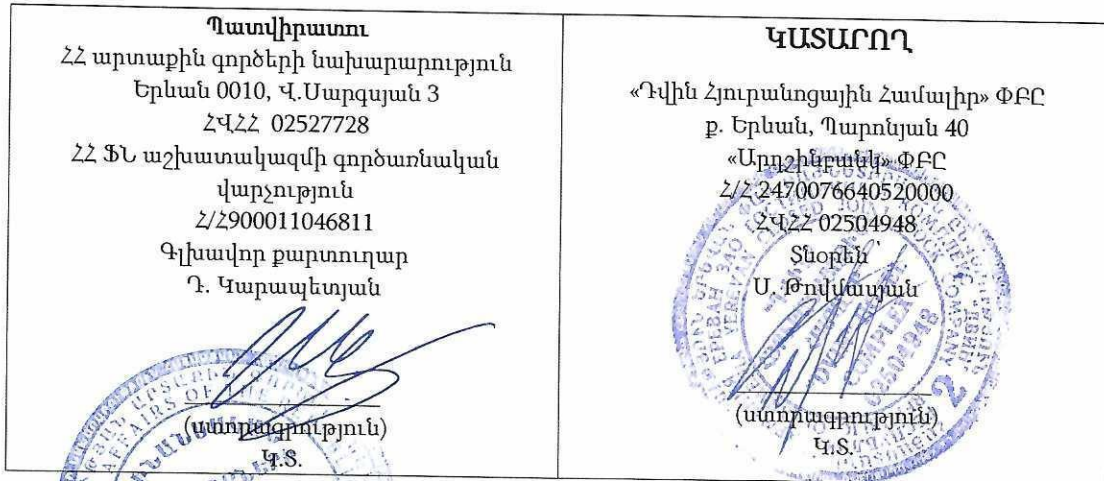 Պատվիրատու
ՀՀ արտաքին գործերի նախարարություն
Երևան 0010, Վ.Սարգսյան 3
ՀՎՀՀ 02527728
ՀՀ ՖՆ աշխատակազմի գործառնական
վարչություն
Հ/Հ900011046811
Գլխավոր քարտուղար
Դ. Կարապետյան
(ստորագրություն)
Կ.Տ.
ԿԱՏԱՐՈՂ
«Դվին Հյուրանոցային Համալիր» ՓԲԸ
ք. Երևան, Պարոնյան 40
«Արդշինբանկ» ՓԲԸ
Հ/Հ 2470076640520000
ՀՎՀՀ 02504948
Տնօրեն՝
Ս. Թովմասյան
(ստորագրություն)
Կ.Տ.
AFFAIRS OF THE
YEREVAN CLOSED JOINT STOCK COMPANY
COMPLEX
02504948
2